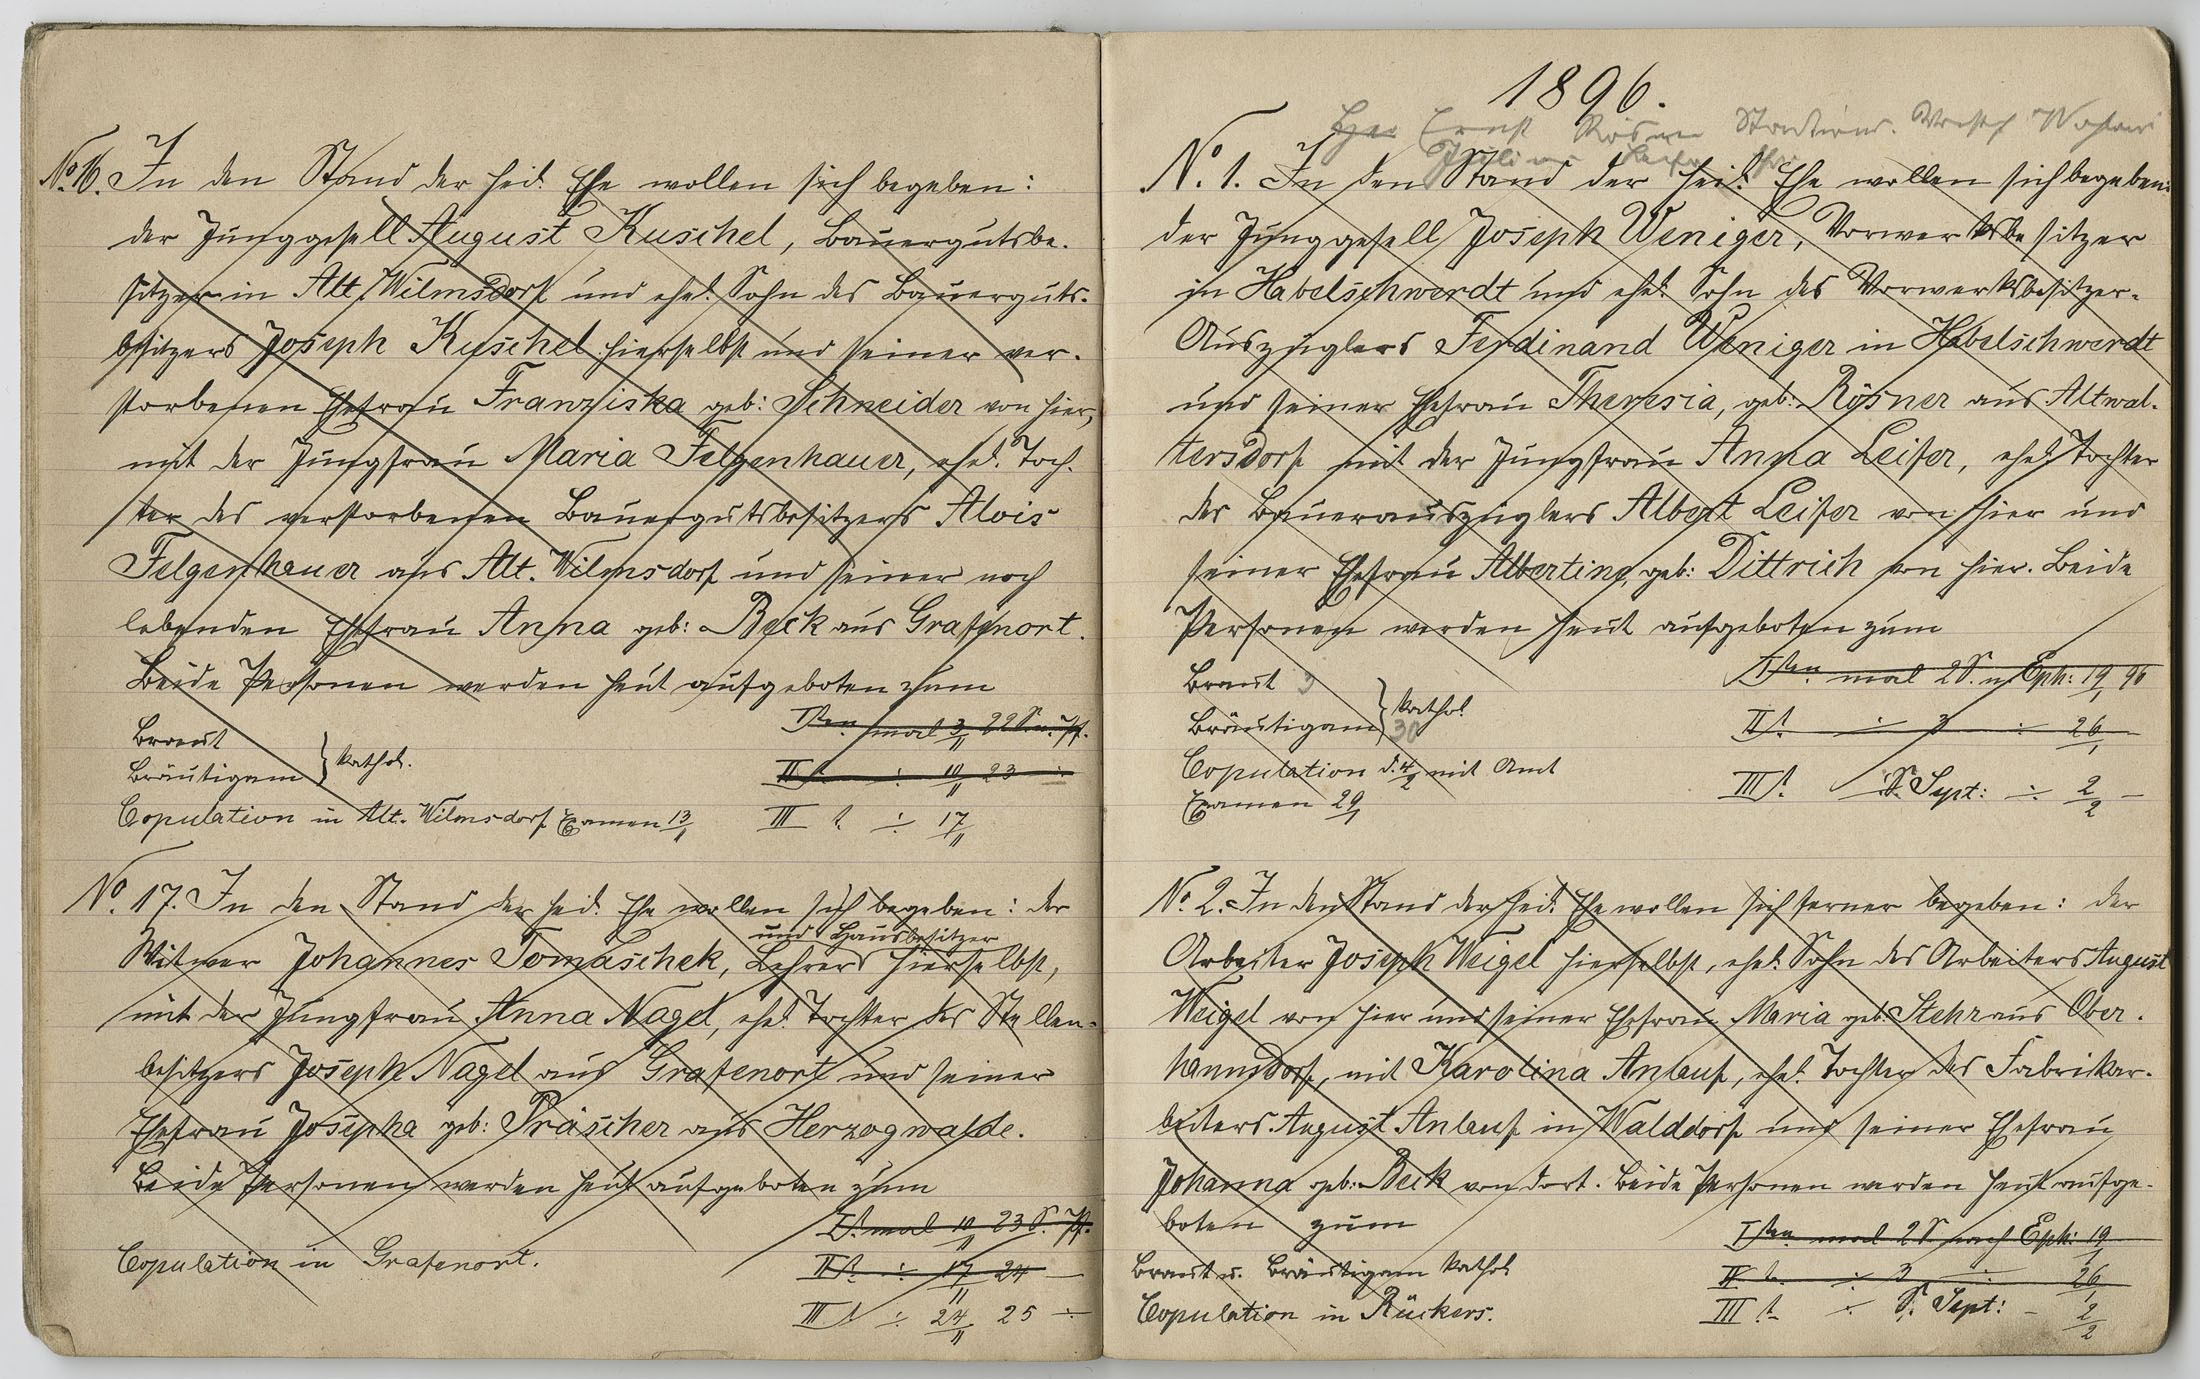 No. 16. In den Stand der heil. Ehe wollen sich begeben:
der Junggesell August Kuschel, Bauergutsbe-
sitzer in Alt Wilmsdorf und ehel. Sohn des Bauerguts-
besitzers Joseph Kuschel hierselbst und seiner ver-
storbenen Ehefrau Franziska geb: Schneider von hier,
mit der Jungfrau Maria Felgenhauer, ehel. Toch-
ter des verstorbenen Bauergutsbesitzers Alois
Felgenhauer aus Alt-Wilmsdorf und seiner noch
lebenden Ehefrau Anna geb: Beck aus Grafenort.
Beide Personen werden heut aufgeboten zum
Iten mal 3/11 22 S. n. Pf.
Braut
Bräutigam } kathol.
IIt ÷ 10/11 23 ÷
Copulation in Alt-Wilmsdorf Examen 13/11
III t ÷ 17/11
No. 17. In den Stand der heil. Ehe wollen sich begeben: der
und Hausbesitzer
Witwer Johannes Tomaschek, Lehrer hierselbst,
mit der Jungfrau Anna Nagel, ehel. Tochter des Stellen-
besitzers Joseph Nagel aus Grafenort und seiner
Ehefrau Josepha geb: Präscher aus Herzogwalde.
Beide Personen werden heut aufgeboten zum
It. mal 10/11 23 S. Pf.
Copulation in Grafenort.
IIt. ÷ 17/11 24 —
III t ÷ 24/11 25 ÷
1896.
Ernst Rösner
No. 1. In den Stand der heil. Ehe wollen sich begeben:
der Junggesell Joseph Weniger, Vorwerksbesitzer
in Habelschwerdt und ehel. Sohn des Vorwerksbesitzer-
Auszüglers Ferdinand Weniger in Habelschwerdt
und seiner Ehefrau Theresia, geb: Rösner aus Altwal-
tersdorf mit der Jungfrau Anna Leifer, ehel. Tochter
des Bauerauszüglers Albert Leifer von hier und
seiner Ehefrau Albertine, geb: Dittrich von hier. Beide
Personen werden heut aufgeboten zum
Iten mal 2 S. n. Eph: 19/1 96
Braut 3
Bräutigam } kathol. 30
IIt. ÷ 3 ÷ 26/1 —
Copulation d. 4/2 mit Amt
Examen 29/1
III t. S. Sept: ÷ 2/2 —
No. 2. In den Stand der heil. Ehe wollen sich ferner begeben: der
Arbeiter Joseph Weigel hierselbst, ehel. Sohn des Arbeiters August
Weigel von hier und seiner Ehefrau Maria geb: Stehr aus Ober-
hannsdorf, mit Karolina Anlauf, ehel. Tochter des Fabrikar-
beiters August Anlauf in Walddorf und seiner Ehefrau
Johanna geb: Beck von dort. Beide Personen werden heut aufge-
boten zum
Iten mal 2 S nach Eph: 19/1
Braut u. Bräutigam kathol.
II t. ÷ 3 ÷ 26/1
Copulation in Rückers.
III t. ÷ S. Sept: — 2/2